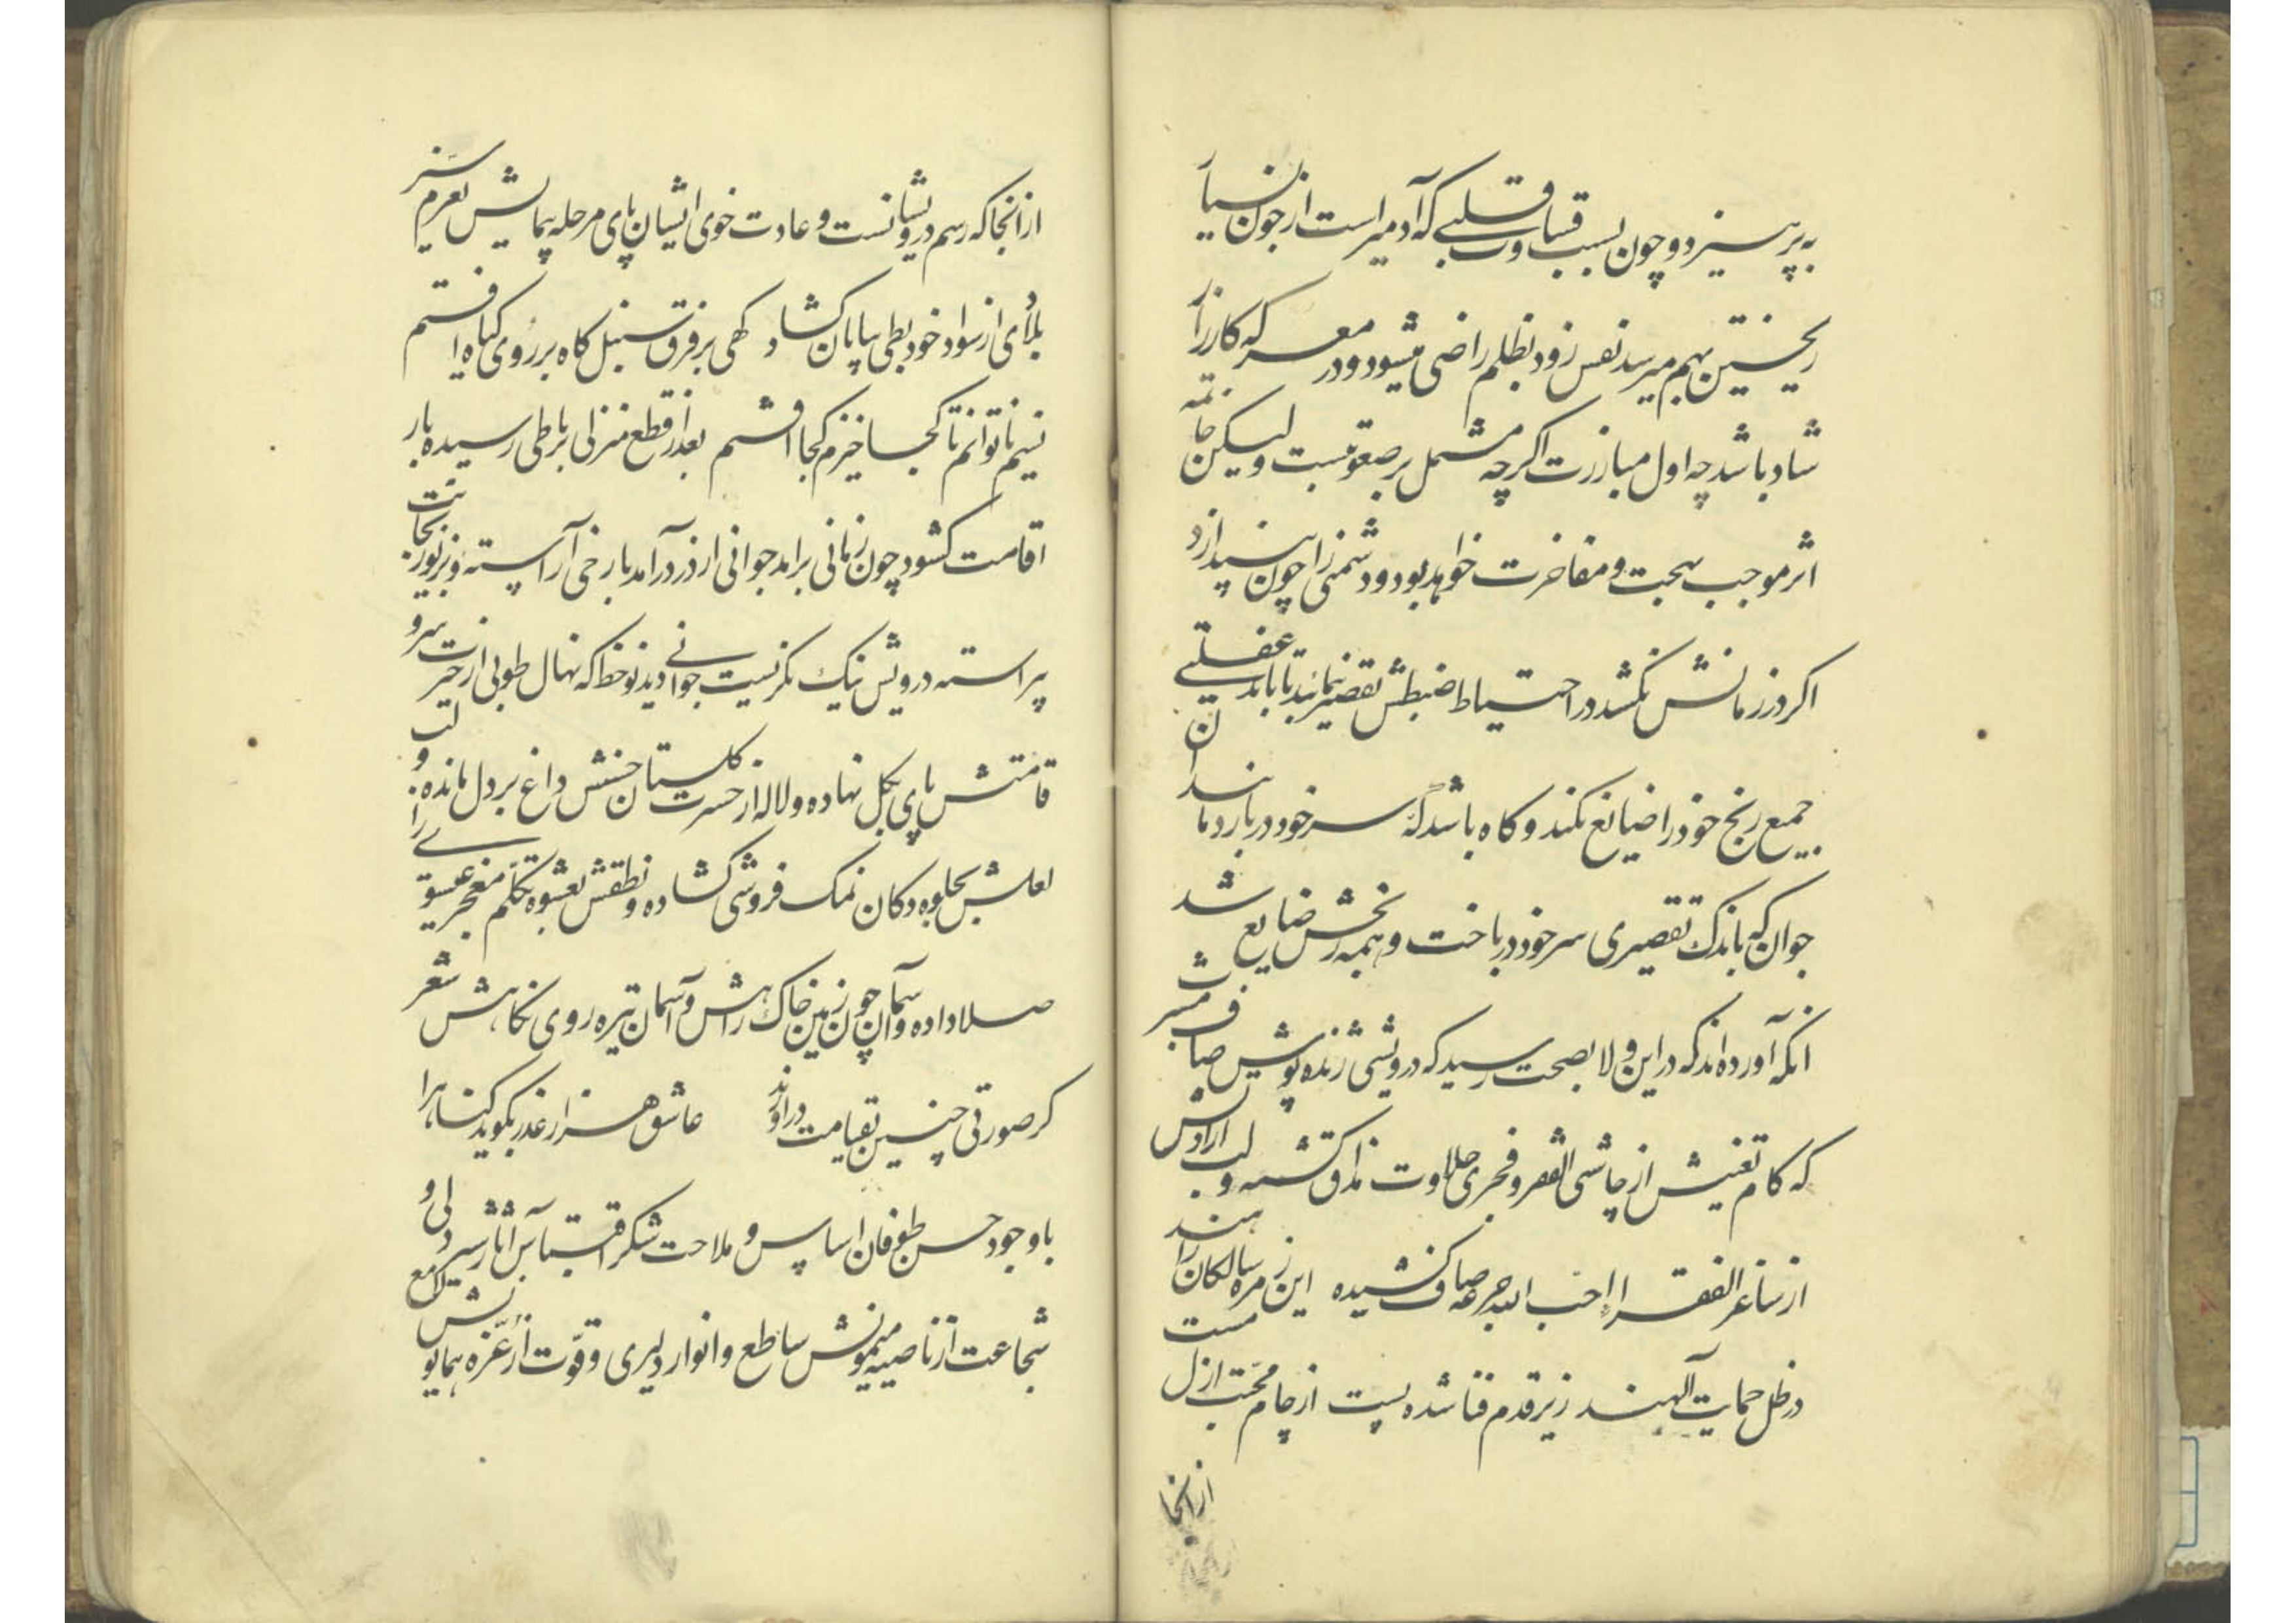 به پرهیزد و چون بسبب قساوت قلبی که آدمیراست از خون ضیا
ریختن بهم میرسد نفس زود بظلم راضی میشود و در معرکه کارزار
شاد باشد چه اول مبارزت اگرچه مشتمل بر صعوبتست ولیکن خاتمه
اثر موجب بهجت و مفاخرت خواهد بود و دشمنی را چون بپندازد
اگر در زمانش نکشد در احتیاط ضبطش تقصیر ننماید تا باندک غفلتی
جمیع رنج خود را ضایع نکند و گاه باشد که سر خود در بازد مانند آن
جوان که باندک تقصیری سر خود در باخت و همه رنجش ضایع شد
آنکه آورده‌اند که در این ولا بصحت رسید که درویشی ژنده پوش صاف مشرب
که کام تعیش از چاشنی الفقر و فخری حلاوت مذاق گشته و لب ارادتش
از ساغر الفقرا احب الله جرعه صاف کشیده این زمره سالکان راهند
در ظل حمایت آلهند زیر قدم فنا شده پست از جام محبت ازل مست
از آنجا
از آنجا که رسم درویشانست و عادت خوی ایشان پای مرحله پیمایش بعزم سیر
بلادی از سواد خود بطی بیابان گشاد گهی بر فرق سنبل گاه بر روی گیاه افتم
نسیم ناتوانم تا کجا خیزم کجا افتم بعد از قطع منزل برباطی رسیده بار
اقامت گشود چون زمانی برآمد جوانی از در درآمد با رخی آراسته و بزیور نجابت
پیراسته درویش نیک نگریست جوانی دید نوخط که نهال طوبی از حیرت سرو
قامتش پای بگل نهاده و لاله از حسرت گلستان حسنش داغ بر دل مانده و لب
لعلش بجلوه دکان نمک فروشی گشاده و نطقش بعشوه تکلم معجز عیسوی را
صلا داده و آسمان چون زمین خاک راهش و آسمان تیره روی نگاهش شعر
گر صورتی چنین بقیامت درآورند عاشق هزار عذر بگوید گناه را
با وجود حسن طوفان اساس و ملاحت شکر اقتباس آثار سردلی و
شجاعت از ناصیه میمونش ساطع و انوار دلیری و قوت از غره همایونش لامع